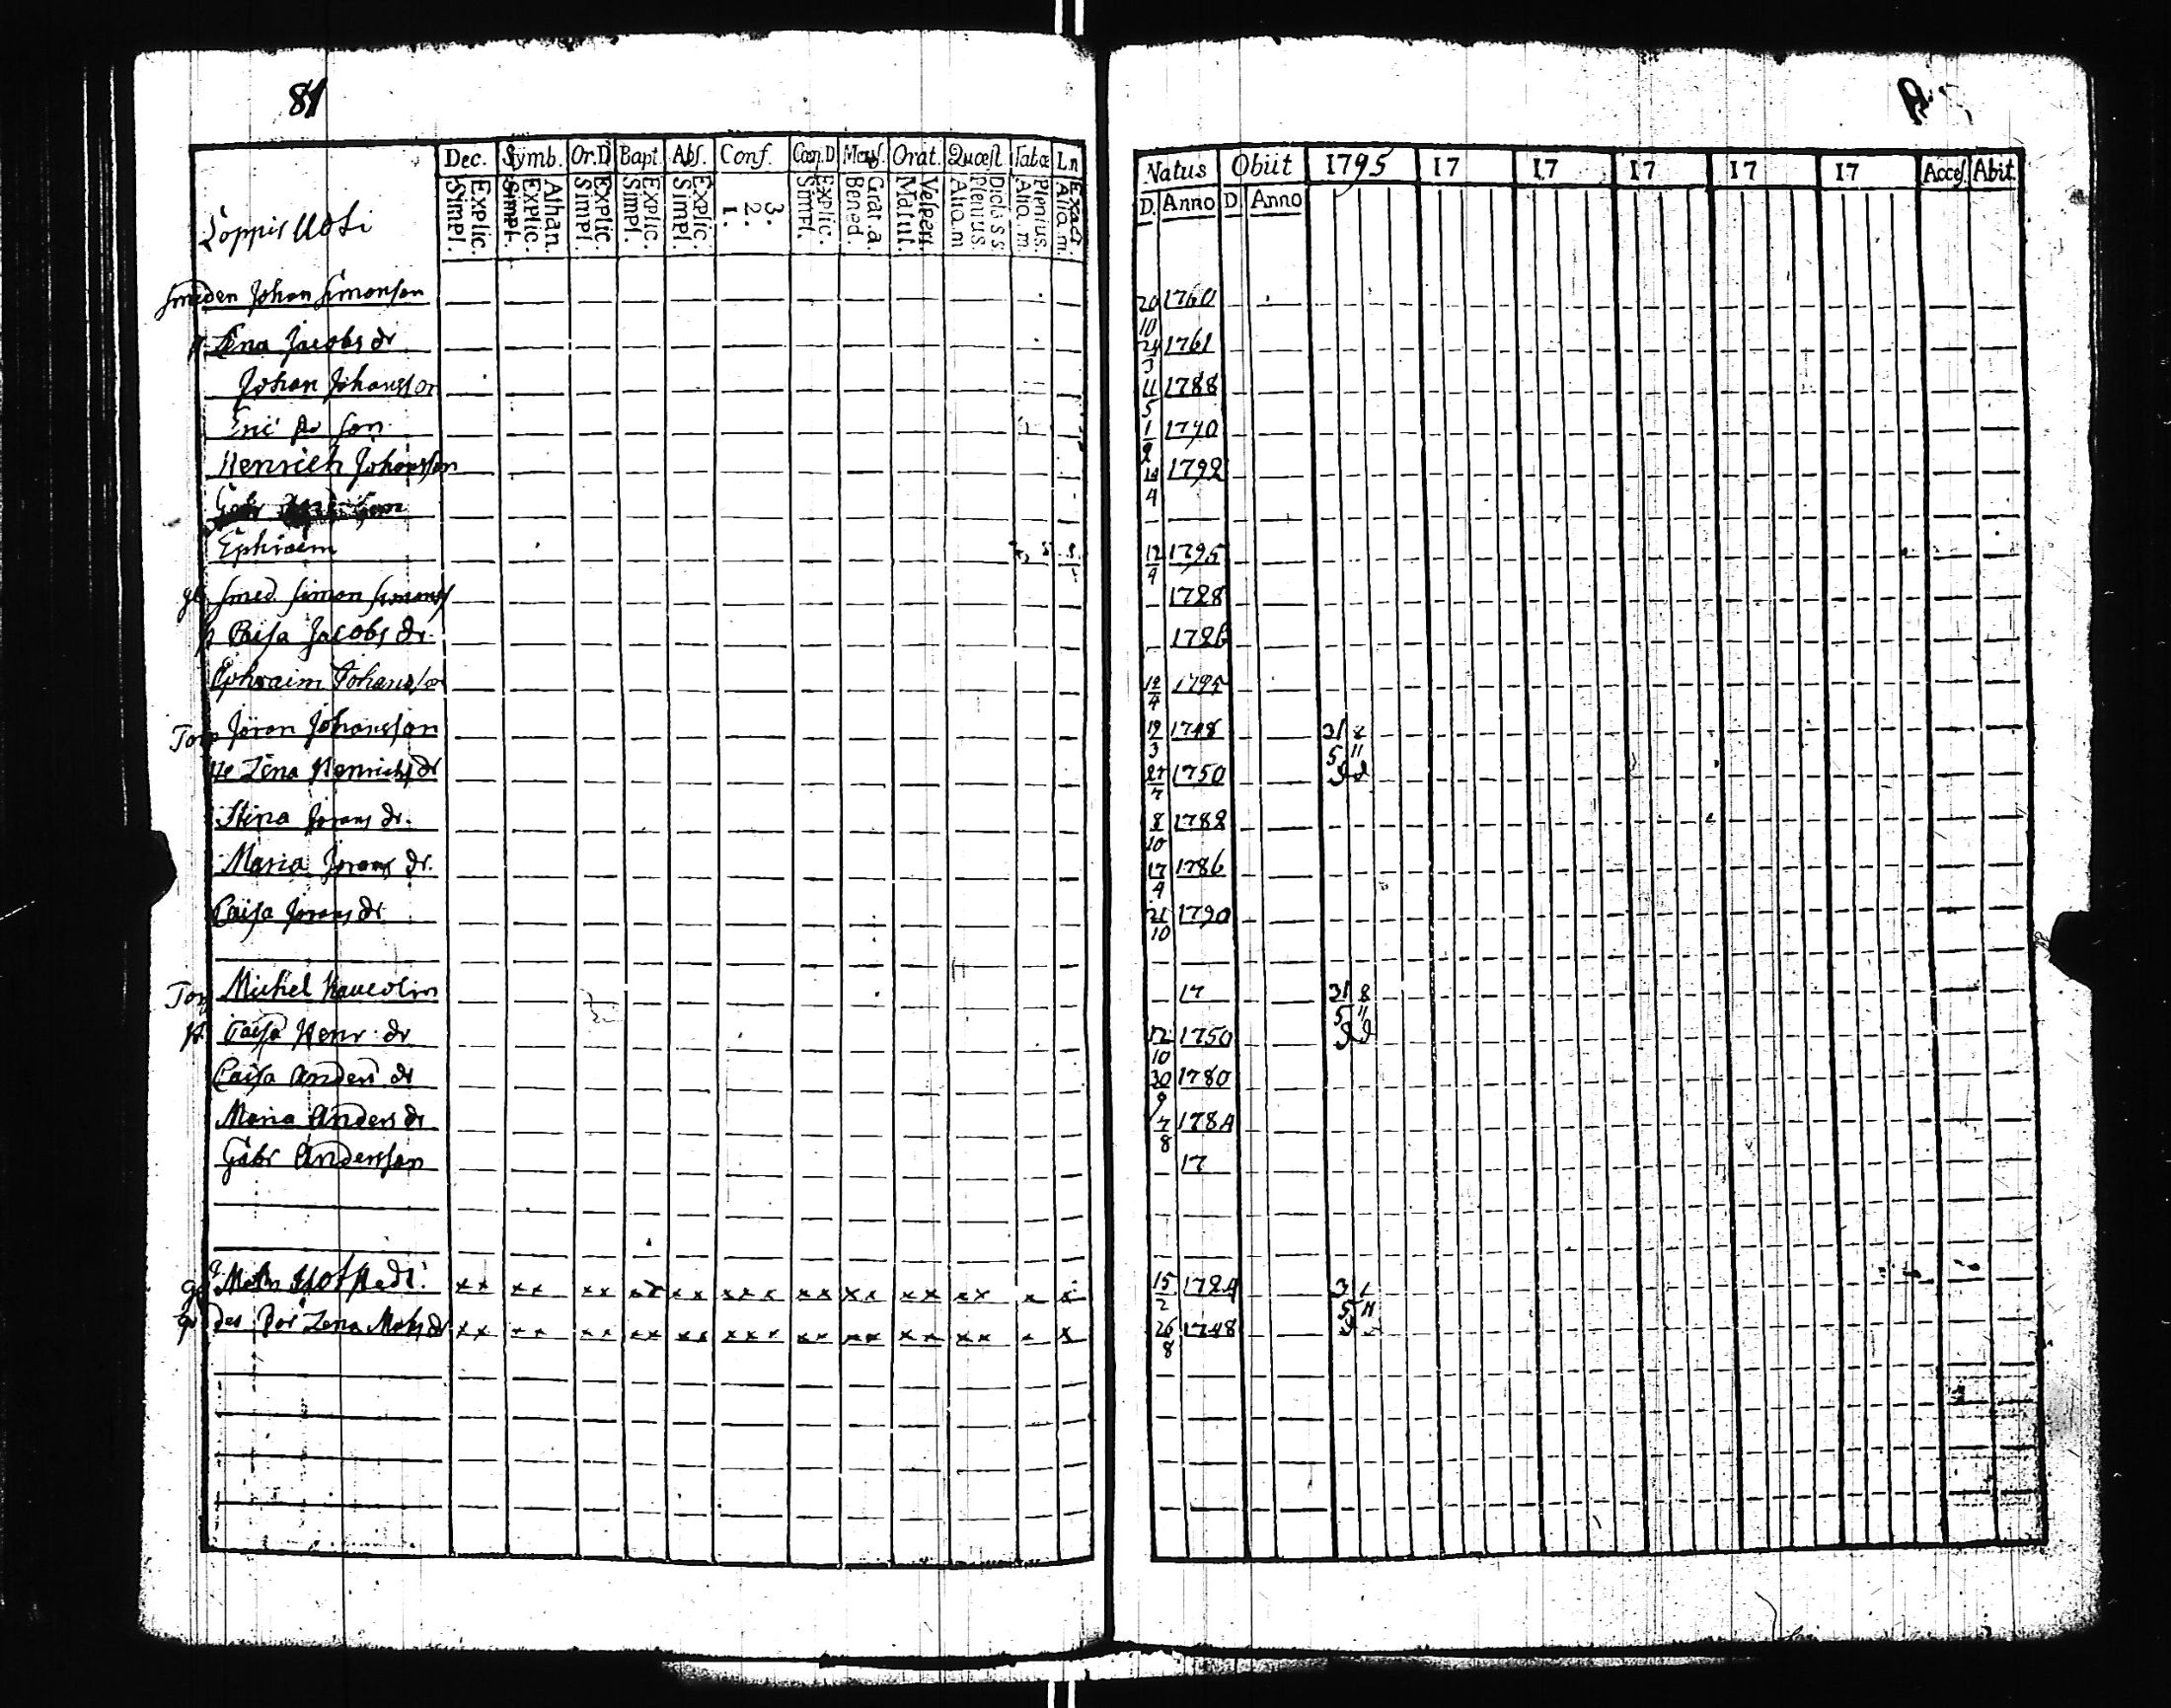 81
Dec. Symb. Or.D Bapt. Abs. Conf. Cœn.D Mens. Orat. Quæst. Tabœ Ln
Simpl. Explic. Simpl. Explic. Athan. Simpl. Explic. Simpl. Explic. Simpl. Explic. 1. 2. 3. Simpl. Explic. Bened. Grat.a. Matut. Vespert. Aliq.m Plenius. Dicta s s. Aliq.m. Plenius. Aliq.m. Exact.
Natus Obiit 1795 17 17 17 17 17 Acces. Abit
D. Anno D Anno
Loppis
Smeden Johan Simonson 20/10 1760
H. Lena Jacobs dr 24/3 1761
Johan Johansson 11/5 1788
Eric son 1/2 1790
Henrich Johansson 14/4 1792
Ephraim 12/4 1795
gl Smed Simon Simons 1728
H Caisa Jacobs dr. 1726
Ephraim Johansson 12/4 1795
Torp Jöran Johansson 19/3 1748 31/5
He Lena Henrichs dr 27/7 1750
Stina Jörans dr. 8/10 1782
Maria Jörans dr. 17/4 1786
Caisa Jörans dr. 21/10 1790
Torp Michel 17 31/5 8/11
H. Caisa Henr. dr 12/10 1750
Caisa Anders dr 30/9 1780
Maria Anders dr 7/8 1784
Gabr Andersson 17
Mats x x x x x x x x x x x x x x x x x x x x x x x 15/2 1724
des Lena Mats dr x x x x x x x x x x x x x x x x x x x x x x x 26/8 1748